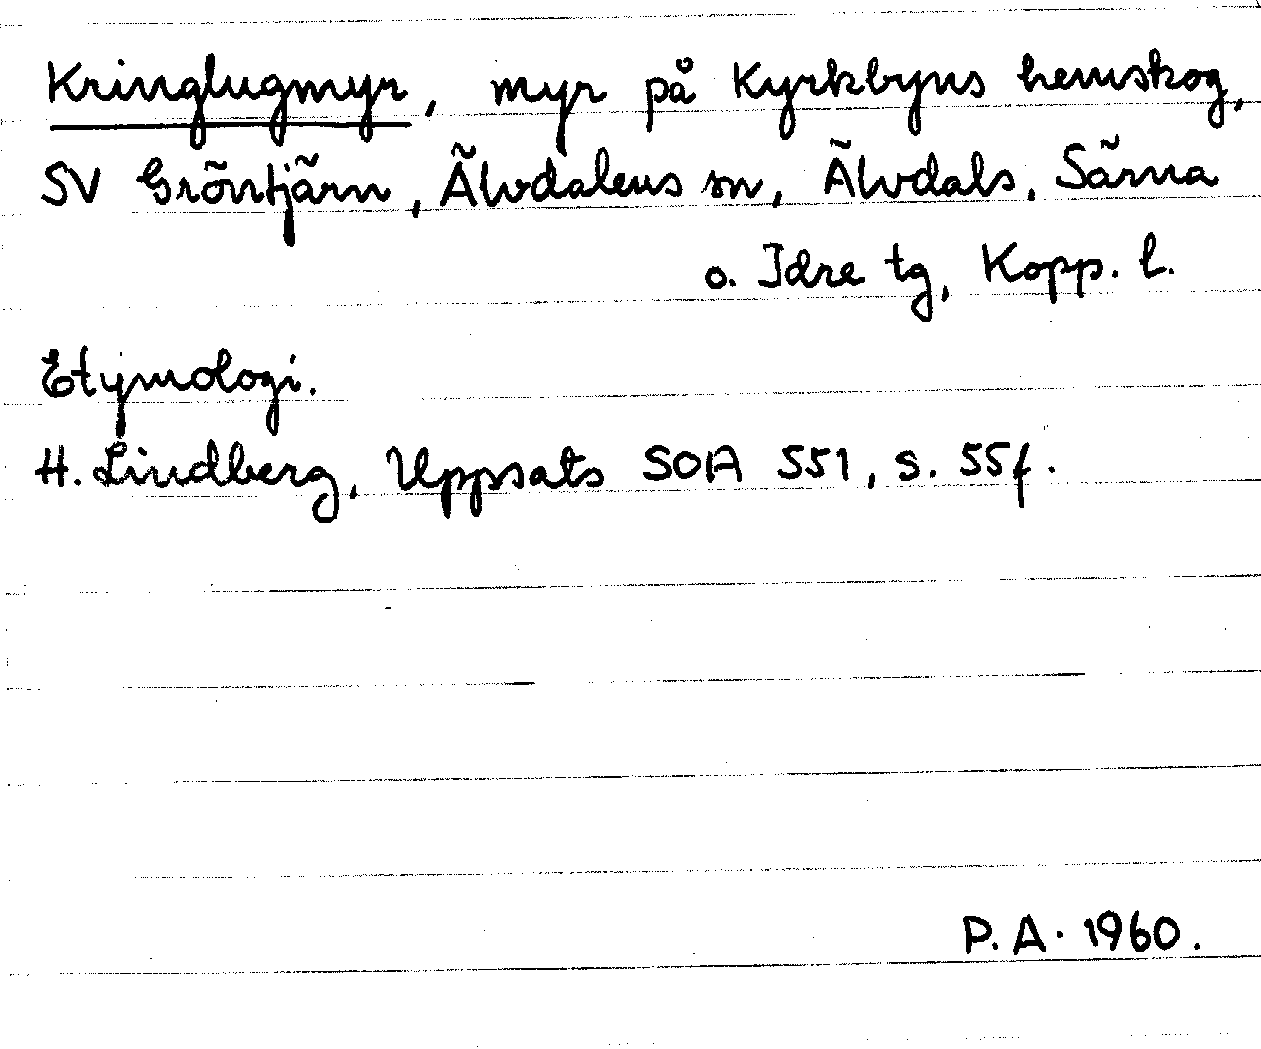 Kringlugmyr, myr på Kyrkbyns hemskog,
SV Gröntjärn, Älvdalens sn, Älvdals, Särna
o. Idre tg, Kopp. l.
Etymologi.
H. Lindberg, Uppsats SOA 551, s. 55f.
P.A. 1960.